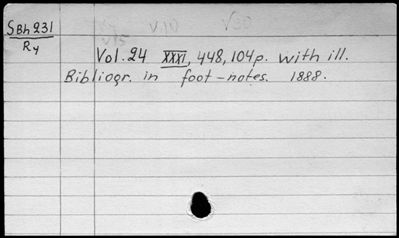 SBh 231
Ry
Vol. 24 XXXI, 448, 104 p. with ill.
Bibliogr. in foot-notes. 1888.